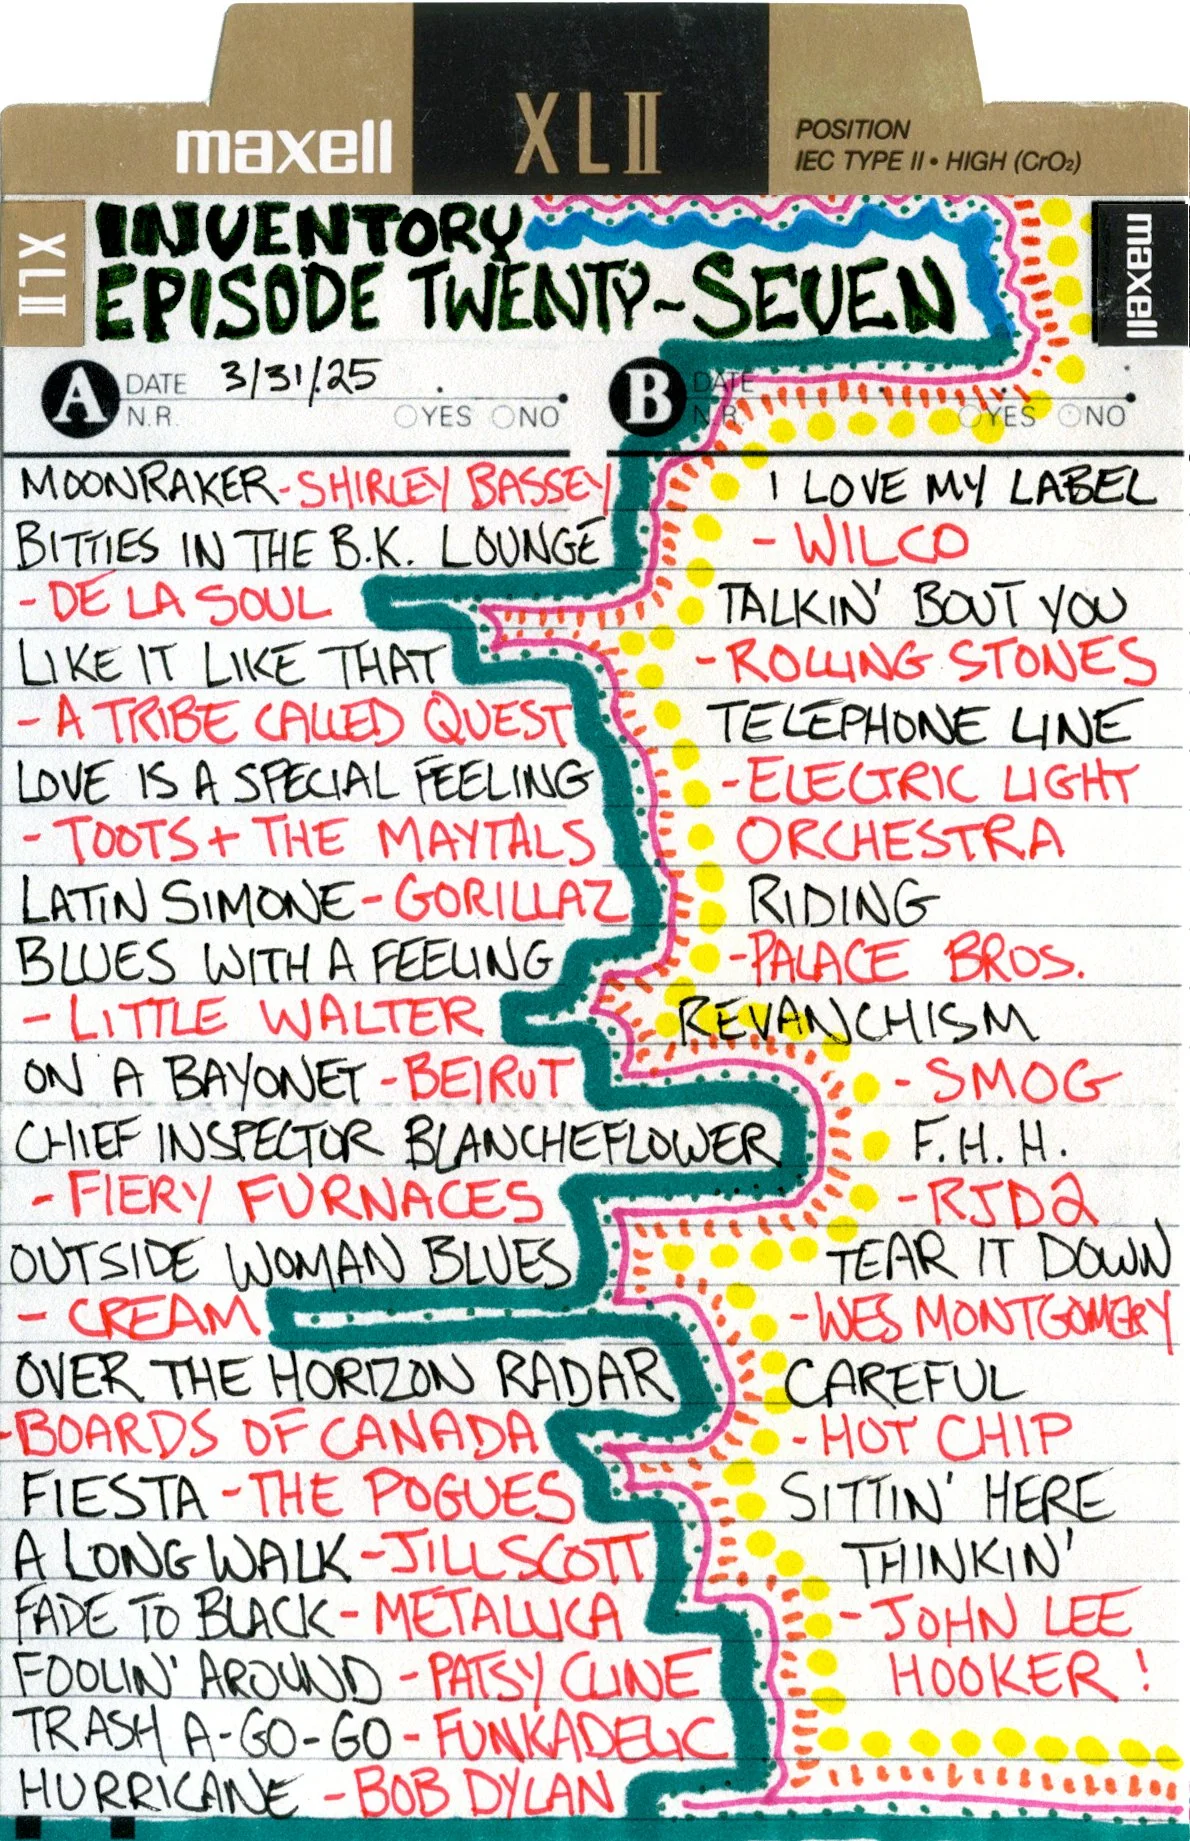 maxell
XLII
POSITION
IEC TYPE II • HIGH (CrO₂)
XLII
INVENTORY
EPISODE TWENTY-SEVEN
maxell
A DATE 3/31/25
N.R. YES NO
B DATE
N.R. YES NO
MOONRAKER-SHIRLEY BASSEY
BITTIES IN THE B.K. LOUNGE
- DE LA SOUL
LIKE IT LIKE THAT
- A TRIBE CALLED QUEST
LOVE IS A SPECIAL FEELING
- TOOTS + THE MAYTALS
LATIN SIMONE - GORILLAZ
BLUES WITH A FEELING
- LITTLE WALTER
ON A BAYONET - BEIRUT
CHIEF INSPECTOR BLANCHEFLOWER
- FIERY FURNACES
OUTSIDE WOMAN BLUES
- CREAM
OVER THE HORIZON RADAR
-BOARDS OF CANADA
FIESTA - THE POGUES
A LONG WALK - JILL SCOTT
FADE TO BLACK - METALLICA
FOOLIN' AROUND - PATSY CLINE
TRASH A-GO-GO - FUNKADELIC
HURRICANE - BOB DYLAN
I LOVE MY LABEL
- WILCO
TALKIN' BOUT YOU
- ROLLING STONES
TELEPHONE LINE
- ELECTRIC LIGHT
ORCHESTRA
RIDING
- PALACE BROS.
REVANCHISM
- SMOG
F.H.H.
- RJD2
TEAR IT DOWN
- WES MONTGOMERY
CAREFUL
- HOT CHIP
SITTIN' HERE
THINKIN'
- JOHN LEE
HOOKER !